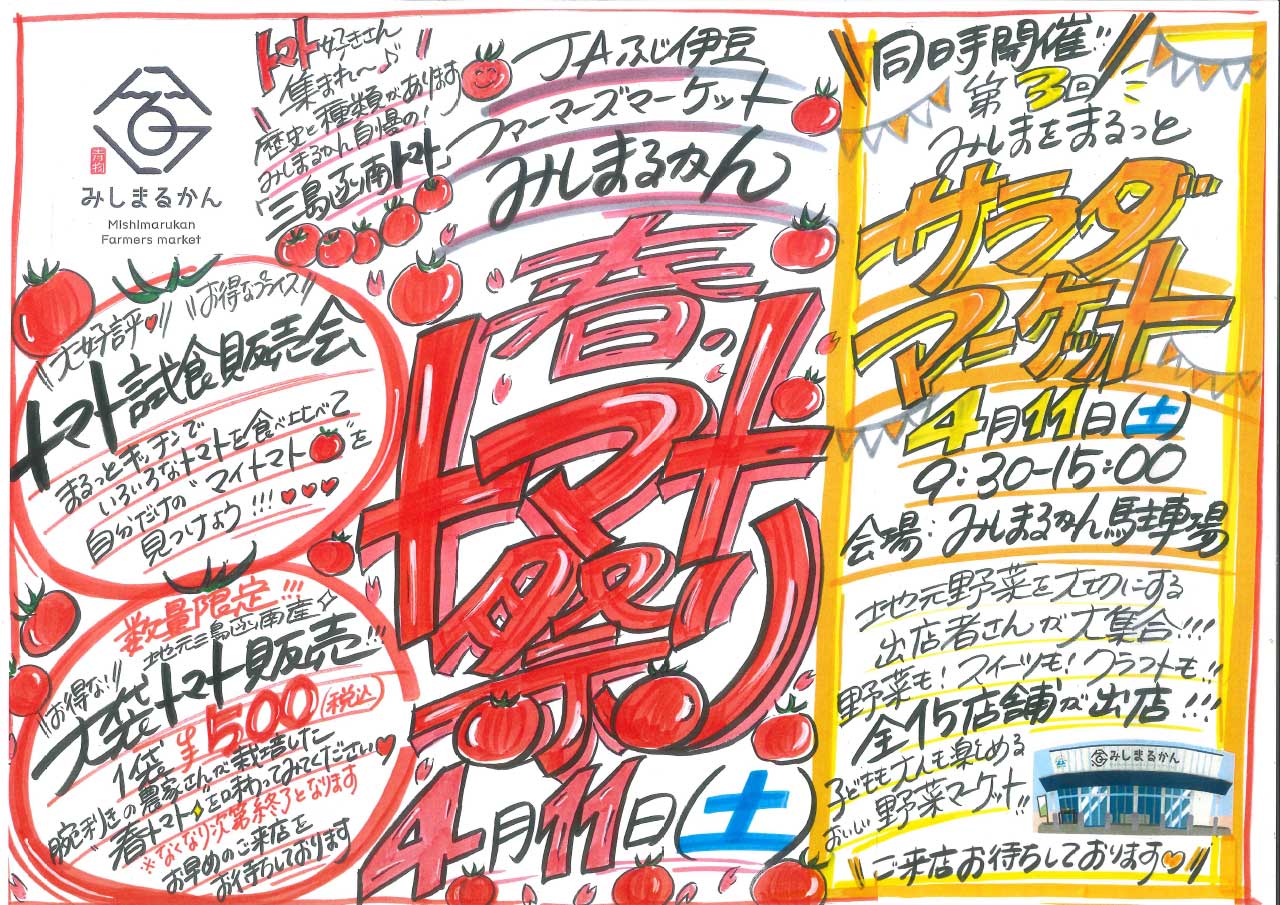 青物
みしまるかん
Mishimarukan
Farmers market
トマト好きさん
集まれ〜♪
歴史と種類があります
みしまるかん自慢の!
「三島函南トマト」
JAふじ伊豆
ファーマーズマーケット
みしまるかん
春の
トマト
祭り
4月11日(土)
大好評♥
お得なプライス
トマト試食販売会
まるっとキッチンで
いろいろなトマトを食べ比べて
自分だけの"マイトマト"を
見つけよう!!!♥♥♥
数量限定!!!
地元三島函南産
お得な!!
大袋トマト販売!!!
1袋 ¥500(税込)
腕利きの農家さんが栽培した
"春トマト"を味わってみてください♥
※なくなり次第終了となります
お早めのご来店を
お待ちしております
同日時開催!!
第3回
みしまをまるっと
サラダ
マーケット
4月11日(土)
9:30-15:00
会場:みしまるかん駐車場
地元野菜を大切にする
出店者さんが大集合!!!
野菜も!スイーツも!クラフトも!!
全15店舗が出店!!!
子どもも大人も楽しめる
おいしい野菜マーケット!!
みしまるかん
ご来店お待ちしております♥